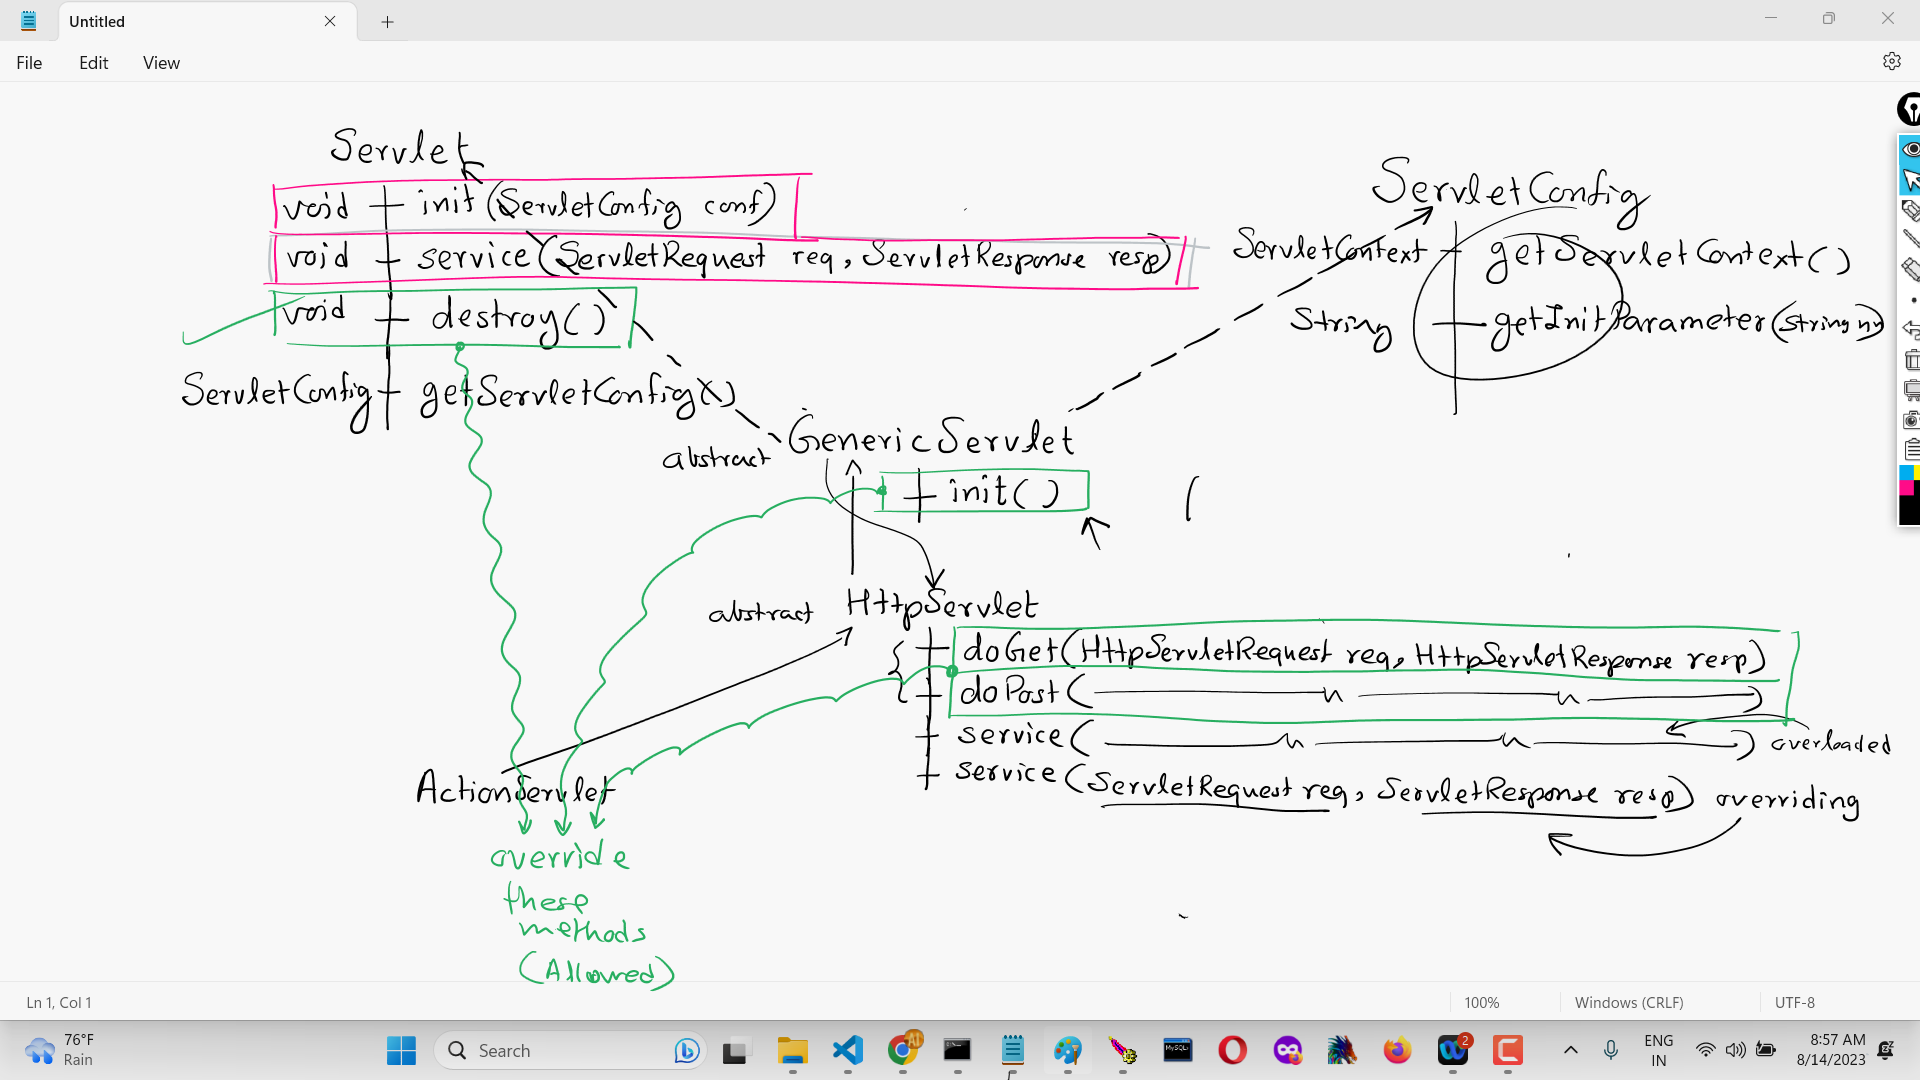 Untitled
File Edit View
Servlet
void init(ServletConfig conf)
void service(ServletRequest req, ServletResponse resp)
void destroy()
ServletConfig getServletConfig()
ServletConfig
ServletContext getServletContext()
String getInitParameter(String nm)
abstract GenericServlet
init()
(
abstract HttpServlet
doGet(HttpServletRequest req, HttpServletResponse resp)
doPost( )
service( ) overloaded
service(ServletRequest req, ServletResponse resp) overriding
ActionServlet
override
these
methods
(Allowed)
Ln 1, Col 1 100% Windows (CRLF) UTF-8
76°F
Rain
Search
AI
MySQL
2
ENG
IN
8:57 AM
8/14/2023